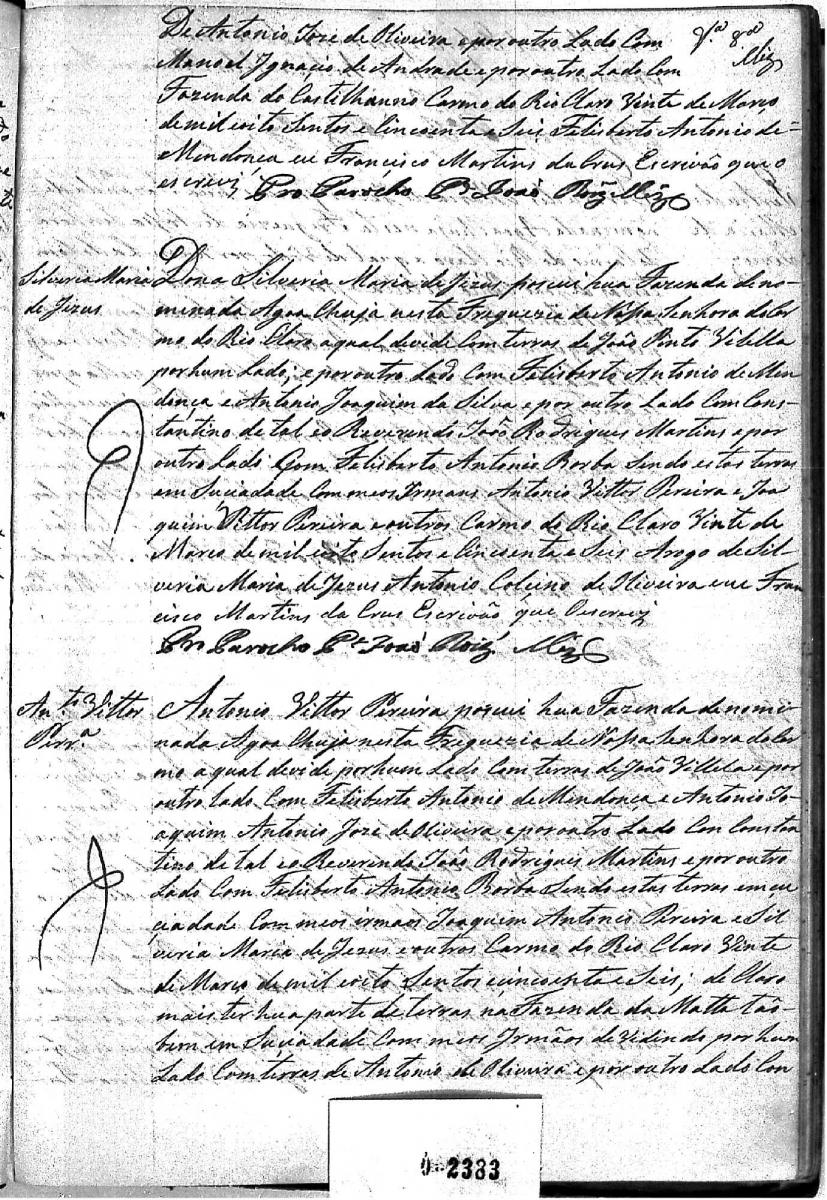 De Antonio Joze de Oliveira e por outro Lado Com
Manoel Ignacio de Andrade e por outro Lado Com
Fazenda do Castilhanno Carmo do Rio Claro Vinte de Março
de mil eoito Sentos e Cincoenta e Seis Felisberto Antonio de
Mendonca eu Francisco Martins da Crus Escrivão que o
escrevi Pro Parocho Pe João Roiz Miz
Silveria Maria
de Jezus
Dona Silveria Maria de Jezus posui hua Fazenda deno-
menada Agoa Chuja nesta Freguezia de Nossa Senhora do Car
mo do Rio Claro aqual devide Com terras de João Pinto Vilella
por hum Lado; e por outro Lado Com Felisberto Antonio de Men
donça e Antonio Joaquim da Silva e por outro Lado Com Cons-
tantino de tal eo Reverendo João Rodrigues Martins e por
outro Lado Com Felisberto Antonio Borba Sendo estas terras
em Suciadade Com meos Irmans Antonio Vittor Pereira e Joa
quim Vittor Pereira e outros Carmo do Rio Claro Vinte de
Marco de mil eoito Sentos e Cincoenta e Seis Arogo de Sil-
veria Maria de Jezus Antonio de Oliveira eue Fran
cisco Martins da Crus Escrivão que Oescrevi
Pro Parocho Pe João Roiz Miz
Anto Vittor
Perra
Antonio Vittor Pereira posui hua Fazenda denomi
nada Agoa Chuja nesta Freguezia de Nossa Senhora do Car
mo a qual devide por hum Lado Com terras de João Villela e por
outro lado Com Felisberto Antonio de Mendonca e Antonio Jo-
aquim Antonio Joze de Oliveira e por outro Lado Con Constan
tino de tal eo Reverendo João Rodrigues Martins e por outro
Lado Com Felisberto Antonio Borba Sendo estas terras em cu
ciadade Com meos irmaos Joaquim Antonio Pereira e Sil
veria Maria de Jezus e outros Carmo do Rio Claro Vinte
de Março de mil eoito Sentos ecincoenta e Seis; de Claro
mais ter hua parte de terras na Fazenda da Matta tão-
bem em Suciadade Com meos Irmãos de Vidindo por hum
Lado Com terras de Antonio de Oliveira e por outro Lado Con
2383